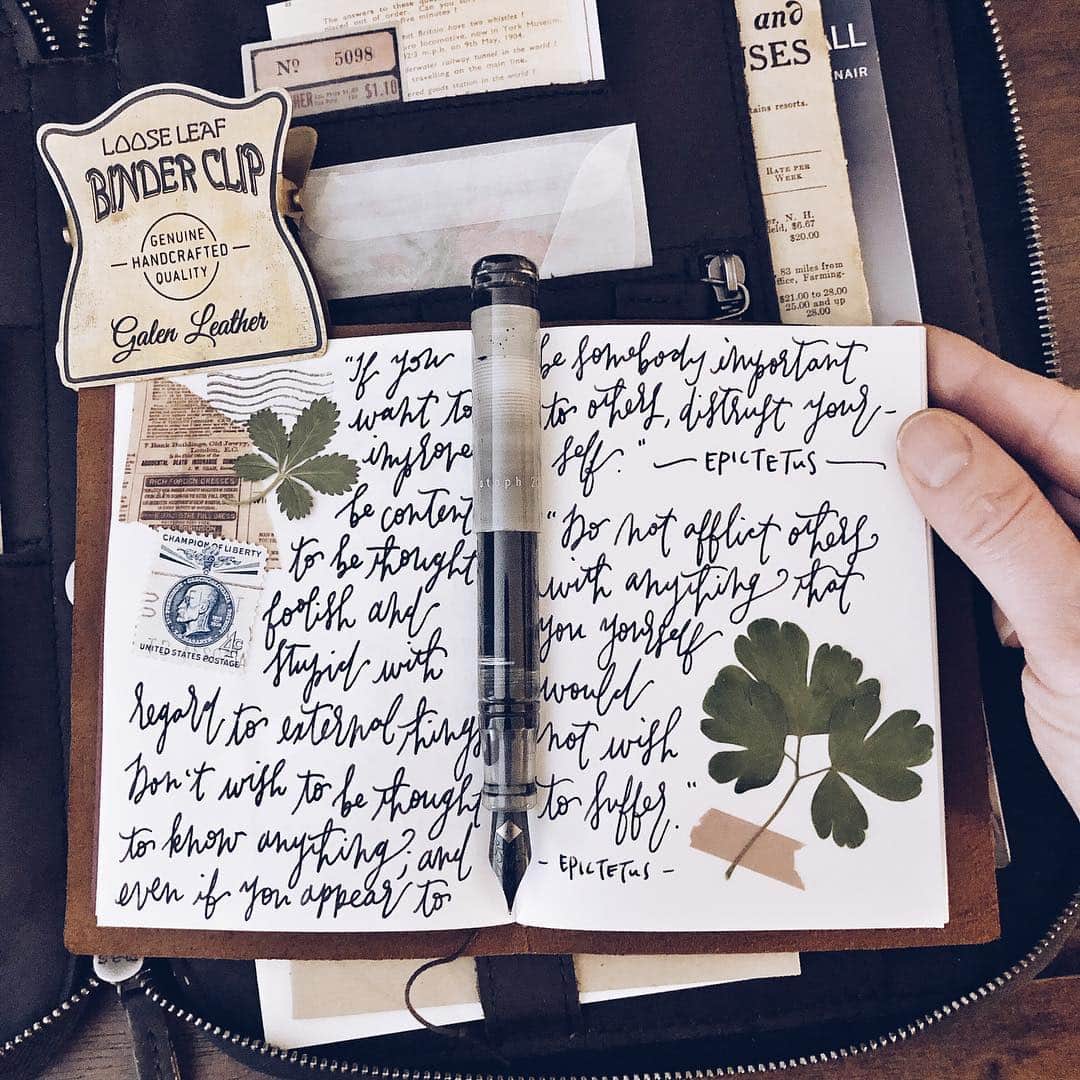 The answers to these quest
placed out of order. Can you
five minutes!
Britain have two whistles!
locomotive, now in York Museum,
12:3 m.p.h. on 9th May, 1904.
railway tunnel in the world!
travelling on the main line.
goods station in the world!
Nº 5098
$1.10
and
SES
ALL
NAIR
ains resorts.
RATE PER
WEEK
N. H.
ield, $6.67
$20.00
83 miles from
ffice, Farming-
$21.00 to 28.00
25.00 and up
28.00
LOOSE LEAF
BINDER CLIP
GENUINE
HANDCRAFTED
QUALITY
Galen Leather
"If you
want to
improve
be content
to be thought
foolish and
stupid with
regard to external things
Don't wish to be thought
to know anything; and
even if you appear to
7 Bank Buildings, Old Jewry,
London, E.C.
ACCIDENTAL DEATH INSURANCE
RICH FOREIGN DRESSES
CHAMPION OF LIBERTY
4c
UNITED STATES POSTAGE
be somebody important
to others, distrust your-
self." — EPICTETUS —
"Do not afflict others
with anything that
you yourself
would
not wish
to suffer."
- EPICTETUS -